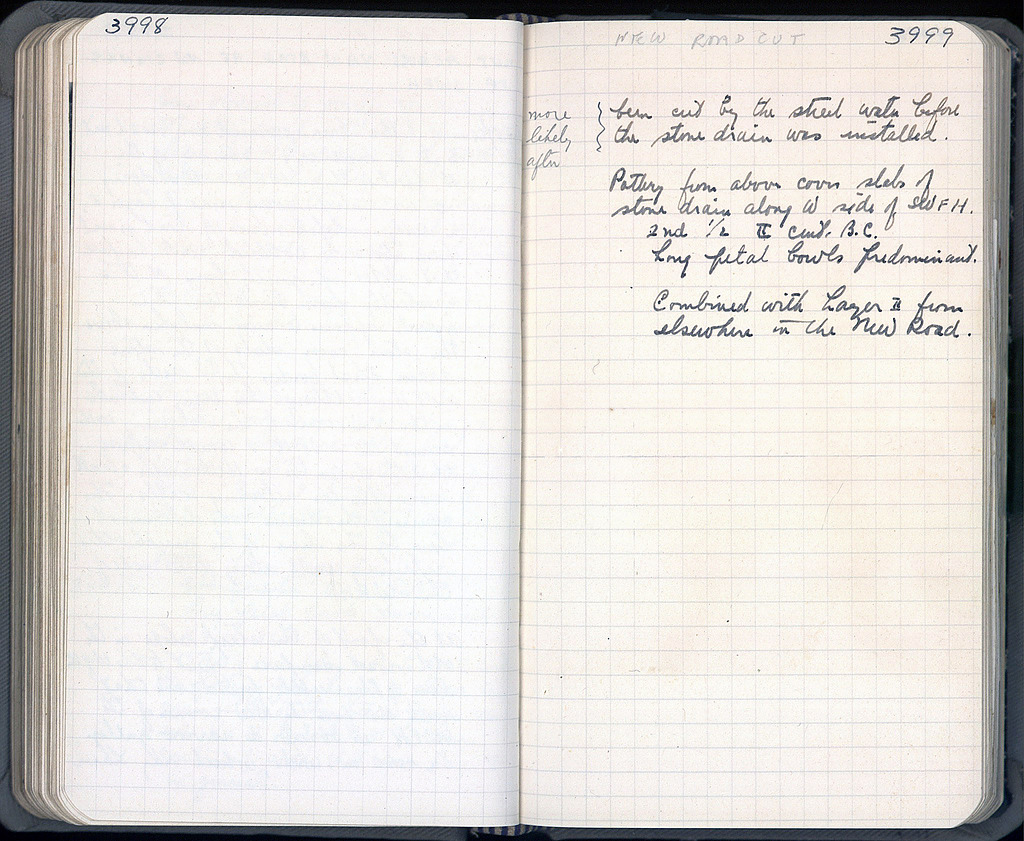 3998
NEW ROAD CUT
3999
been cut by the street water before
the stone drain was installed.
more
likely
after
Pottery from above cover slabs of
stone drain along W side of SWFH.
2nd 1/2 II cent. B.C.
Long petal bowls predominant.
Combined with Layer II from
elsewhere in the New Road.